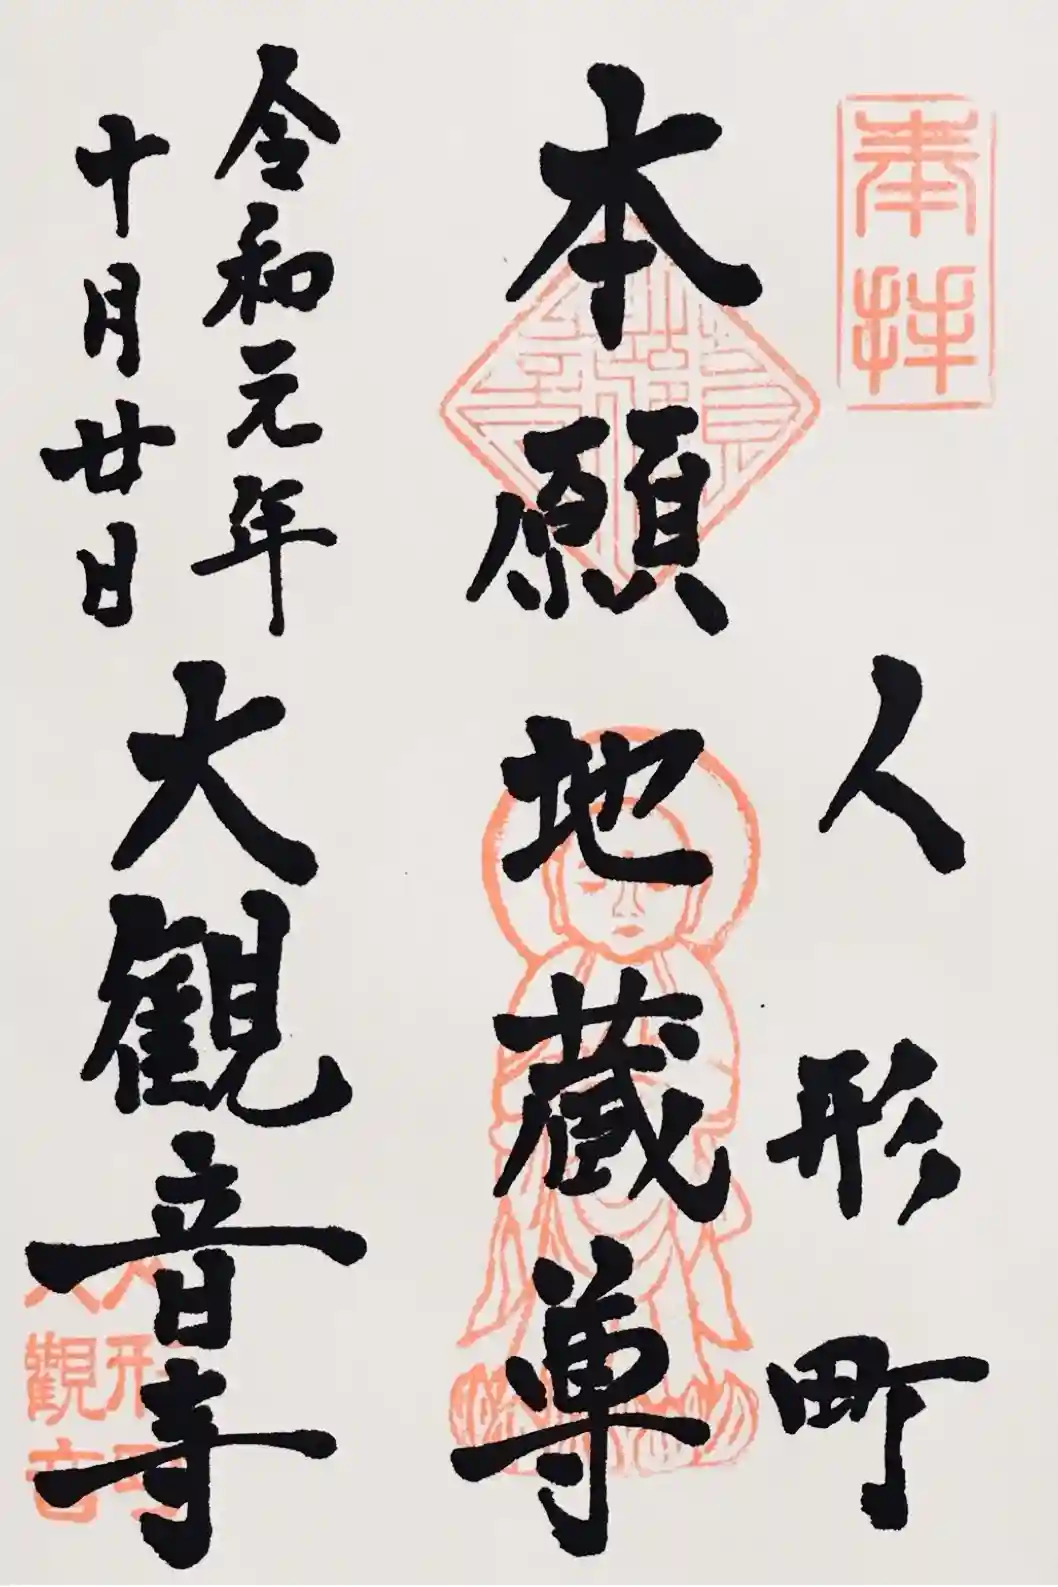 奉拝
人形町
本願地蔵尊
令和元年
十月廿日
大観音寺
人形町
大觀音